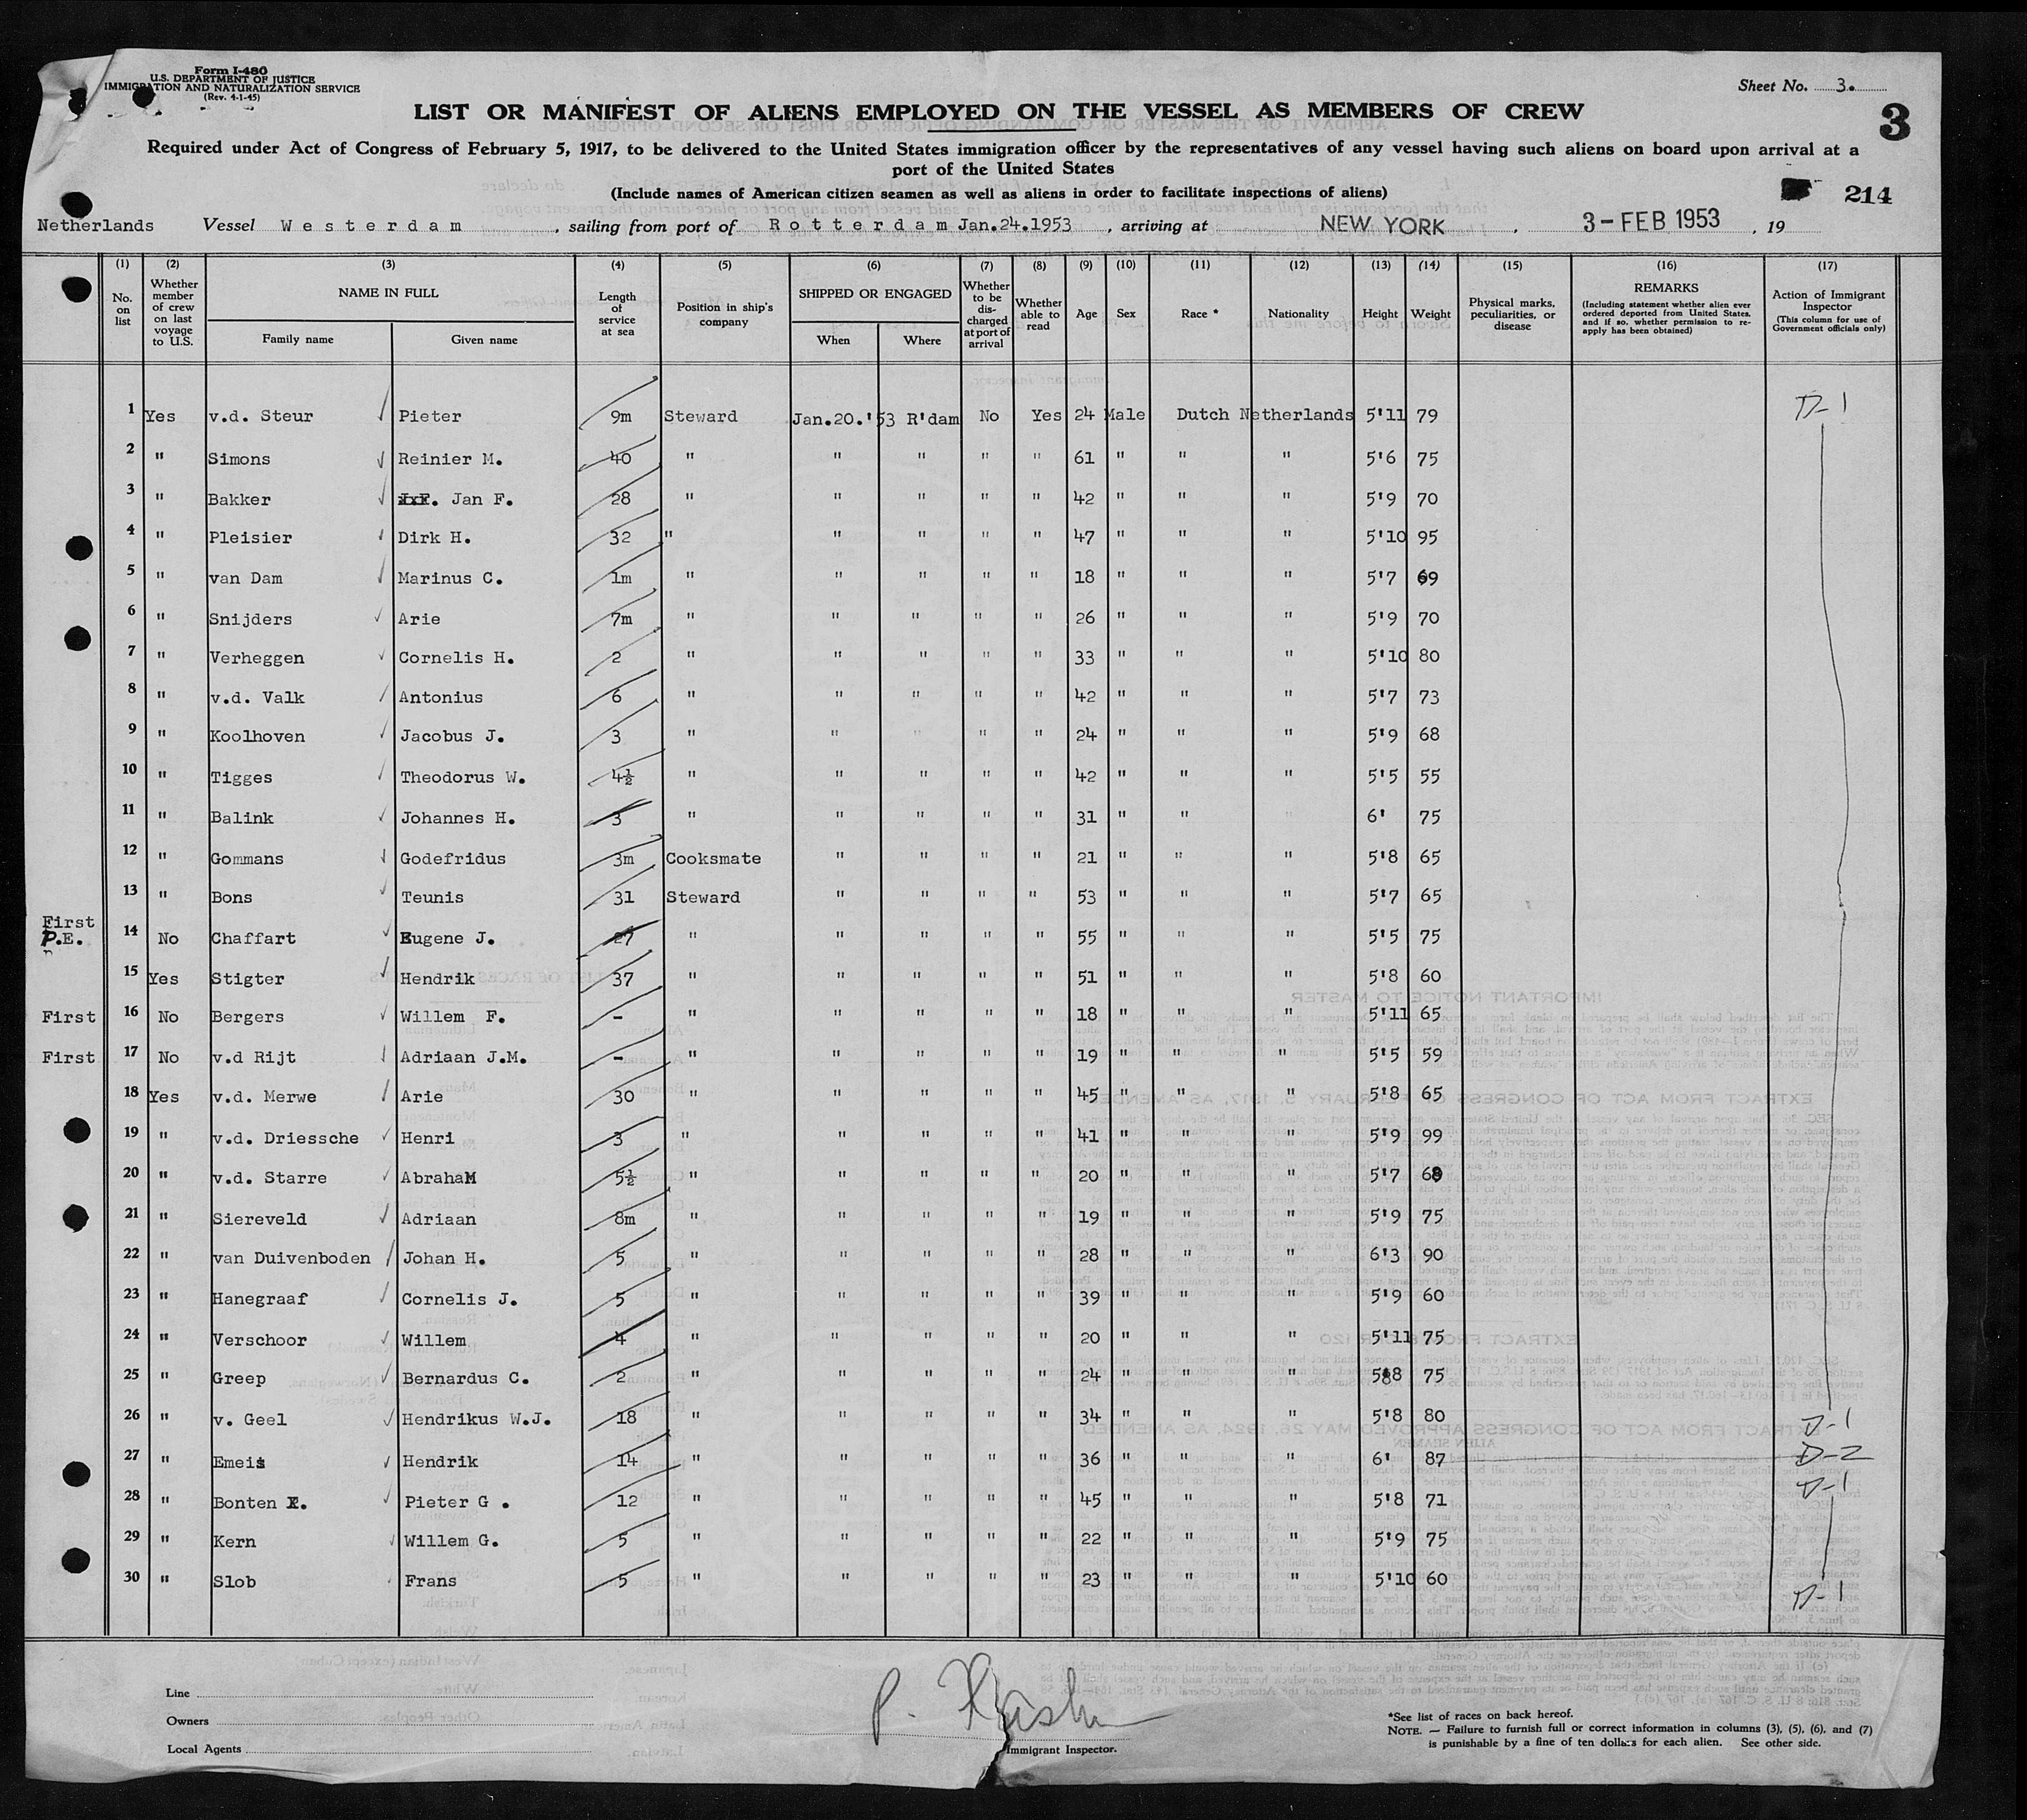 Form I-480
U.S. DEPARTMENT OF JUSTICE
IMMIGRATION AND NATURALIZATION SERVICE
(Rev. 4-1-45)
Sheet No. 3.
LIST OR MANIFEST OF ALIENS EMPLOYED ON THE VESSEL AS MEMBERS OF CREW
3
Required under Act of Congress of February 5, 1917, to be delivered to the United States immigration officer by the representatives of any vessel having such aliens on board upon arrival at a
port of the United States
(Include names of American citizen seamen as well as aliens in order to facilitate inspections of aliens)
214
Netherlands Vessel Westerdam, sailing from port of Rotterdam Jan.24.1953, arriving at NEW YORK, 3-FEB 1953, 19
(1) (2) (3) (4) (5) (6) (7) (8) (9) (10) (11) (12) (13) (14) (15) (16) (17)
No. on list Whether member of crew on last voyage to U.S. NAME IN FULL Family name Given name Length of service at sea Position in ship's company SHIPPED OR ENGAGED When Where Whether to be discharged at port of arrival Whether able to read Age Sex Race * Nationality Height Weight Physical marks, peculiarities, or disease REMARKS (Including statement whether alien ever ordered deported from United States, and if so, whether permission to re-apply has been obtained) Action of Immigrant Inspector (This column for use of Government officials only)
1 Yes v.d. Steur Pieter 9m Steward Jan.20.'53 R'dam No Yes 24 Male Dutch Netherlands 5'11 79 D-1
2 " Simons Reinier M. 40 " " " " " 61 " " " 5'6 75
3 " Bakker Jan F. 28 " " " " " 42 " " " 5'9 70
4 " Pleisier Dirk H. 32 " " " " " 47 " " " 5'10 95
5 " van Dam Marinus C. 1m " " " " " 18 " " " 5'7 69
6 " Snijders Arie 7m " " " " " 26 " " " 5'9 70
7 " Verheggen Cornelis H. 2 " " " " " 33 " " " 5'10 80
8 " v.d. Valk Antonius 6 " " " " " 42 " " " 5'7 73
9 " Koolhoven Jacobus J. 3 " " " " " 24 " " " 5'9 68
10 " Tigges Theodorus W. 4½ " " " " " 42 " " " 5'5 55
11 " Balink Johannes H. 3 " " " " " 31 " " " 6' 75
12 " Gommans Godefridus 3m Cooksmate " " " " 21 " " " 5'8 65
13 " Bons Teunis 31 Steward " " " " 53 " " " 5'7 65
First P.E. 14 No Chaffart Eugene J. 27 " " " " " 55 " " " 5'5 75
15 Yes Stigter Hendrik 37 " " " " " 51 " " " 5'8 60
First 16 No Bergers Willem F. - " " " " " 18 " " " 5'11 65
First 17 No v.d Rijt Adriaan J.M. - " " " " " 19 " " " 5'5 59
18 Yes v.d. Merwe Arie 30 " " " " " 45 " " " 5'8 65
19 " v.d. Driessche Henri 3 " " " " " 41 " " " 5'9 99
20 " v.d. Starre AbrahaM 5½ " " " " " 20 " " " 5'7 68
21 " Siereveld Adriaan 8m " " " " " 19 " " " 5'9 75
22 " van Duivenboden Johan H. 5 " " " " " 28 " " " 6'3 90
23 " Hanegraaf Cornelis J. 5 " " " " " 39 " " " 5'9 60
24 " Verschoor Willem 4 " " " " " 20 " " " 5'11 75
25 " Greep Bernardus C. 2 " " " " " 24 " " " 5'8 75
26 " v. Geel Hendrikus W.J. 18 " " " " " 34 " " " 5'8 80 D-1
27 " Emeis Hendrik 14 " " " " " 36 " " " 6' 87 D-2
28 " Bonten Pieter G . 12 " " " " " 45 " " " 5'8 71 D-1
29 " Kern Willem G. 5 " " " " " 22 " " " 5'9 75
30 " Slob Frans 5 " " " " " 23 " " " 5'10 60 D-1
Line
Owners
Local Agents
P.
Immigrant Inspector.
*See list of races on back hereof.
NOTE. — Failure to furnish full or correct information in columns (3), (5), (6), and (7)
is punishable by a fine of ten dollars for each alien. See other side.